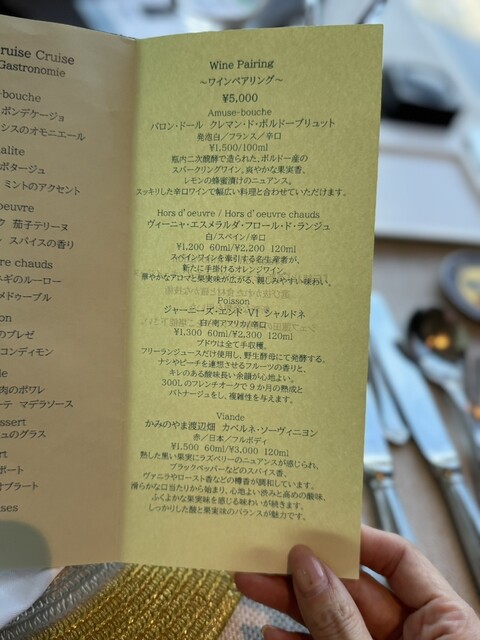 ruise Cruise
Gastronomie
-bouche
ポンデケージョ
シスのオモニエール
alite
ポタージュ
ミントのアクセント
oeuvre
茄子テリーヌ
スパイスの香り
re chauds
ネギのルーロー
メドゥーブル
on
のブレゼ
コンディモン
de
肉のポワレ
ーテ マデラソース
essert
ュのグラス
rt
ポート
ブラート
ises
Wine Pairing
～ワインペアリング～
¥5,000
Amuse-bouche
バロン・ドール クレマン・ド・ボルドーブリュット
発泡白/フランス/辛口
¥1,500/100ml
瓶内二次醗酵で造られた、ボルドー産の
スパークリングワイン。爽やかな果実香。
レモンの蜂蜜漬けのニュアンス。
スッキリした辛口ワインで幅広い料理と合わせていただけます。
Hors d'oeuvre / Hors d'oeuvre chauds
ヴィーニャ・エスメラルダ・フロール・ド・ランジュ
白/スペイン/辛口
¥1,200 60ml/¥2,200 120ml
スペインワインを牽引する名生産者が、
新たに手掛けるオレンジワイン。
華やかなアロマと果実味が広がる、親しみやすい味わい。
Poisson
ジャーニーズ・エンド V1 シャルドネ
白/南アフリカ/辛口
¥1,300 60ml/¥2,300 120ml
ブドウは全て手収穫。
フリーランジュースだけ使用し、野生酵母にて発酵する。
ナシやピーチを連想させるフルーツの香りと、
キレのある酸味長い余韻が心地よい。
300Lのフレンチオークで9か月の熟成と
バトナージュをし、複雑性を与えます。
Viande
かみのやま渡辺畑 カベルネ・ソーヴィニヨン
赤/日本/フルボディ
¥1,500 60ml/¥3,000 120ml
熟した黒い果実にラズベリーのニュアンスが感じられ、
ブラックペッパーなどのスパイス香、
ヴァニラやロースト香などの樽香が調和しています。
滑らかな口当たりから始まり、心地よい渋みと高めの酸味、
ふくよかな果実味を感じる味わいが続きます。
しっかりした酸と果実味のバランスが魅力です。